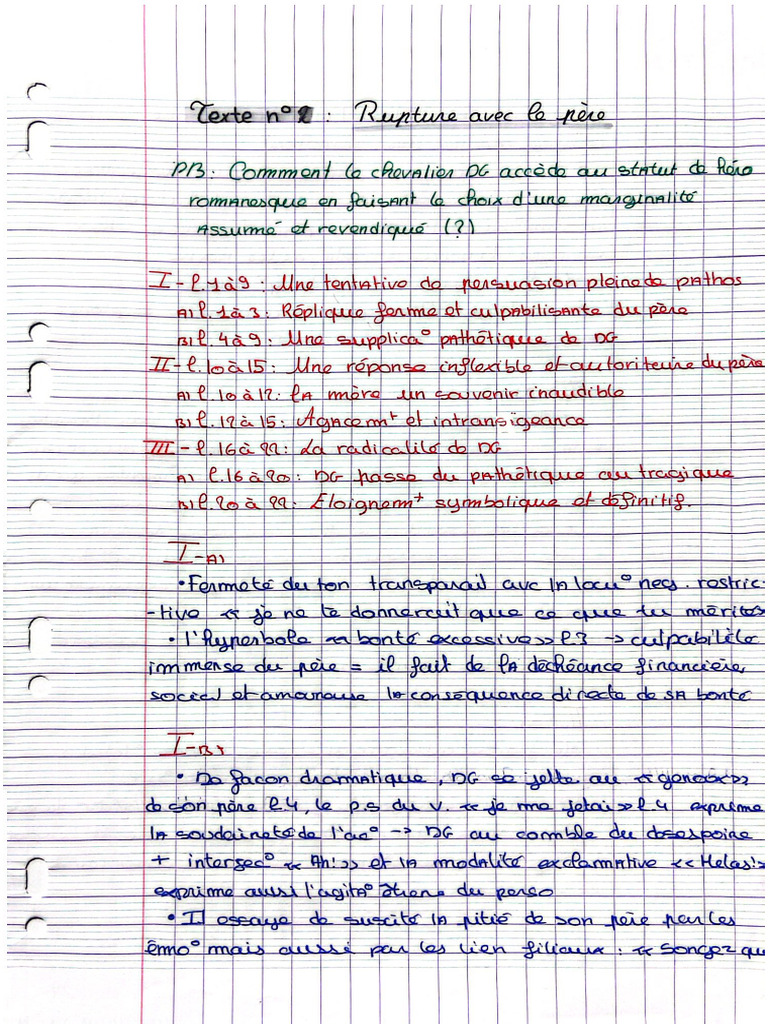 Texte n°2 : Rupture avec le père
PB : Comment le chevalier DG accède au statut de héro
romanesque en faisant le choix d'une marginalité
assumé et revendiqué (?)
I - l.1 à 9 : Une tentative de persuasion pleine de pathos
A) l.1 à 3 : Réplique ferme et culpabilisante du père
B) l.4 à 9 : Une supplica° pathétique de DG
II - l.10 à 15 : Une réponse inflexible et autoritaire du père
A) l.10 à 12 : la mère un souvenir inaudible
B) l.12 à 15 : Agacemt et intransigeance
III - l.16 à 22 : La radicalité de DG
A) l.16 à 20 : DG passe du pathétique au tragique
B) l.20 à 22 : Eloignemt symbolique et définitif.
I-A)
• Fermeté du ton transparait avc la locu° neg. restric-
-tive « je ne te donnerait que ce que tu mérites
• l'hyperbole « bonté excessive » l.3 → culpabilité
immense du père = il fait de la déchéance financière,
social et amoureuse la conséquence directe de sa bonté
I-B)
• De façon dramatique, DG se jette au « genoux »
de son père l.4, le p.s du v. « je me jetai » l.4 exprime
la soudaineté de l'ac° → DG au comble du désespoire
+ intersec° « Ah! » et la modalité exclamative « Helas! »
exprime aussi l'agita° du perso
• Il essaye de suscité la pitié de son père par les
émo° mais aussi par les lien filiaux : « Songez que